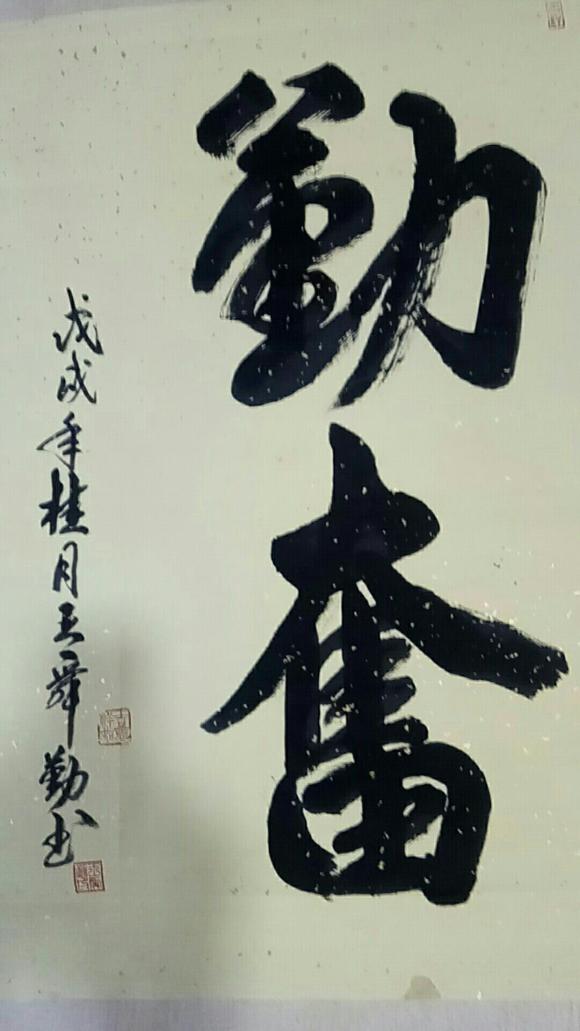 勤奮
戊戌年桂月王舜勤书